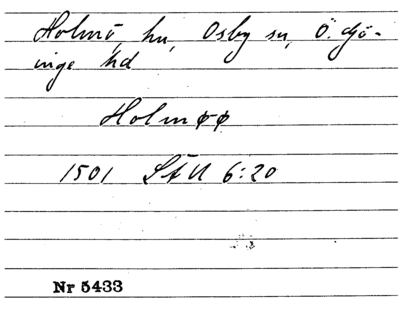 Holmö, hu, Osby sn, Ö. Gö-
inge hd
Holmøø
1501 STU 6:20
Nr 5433